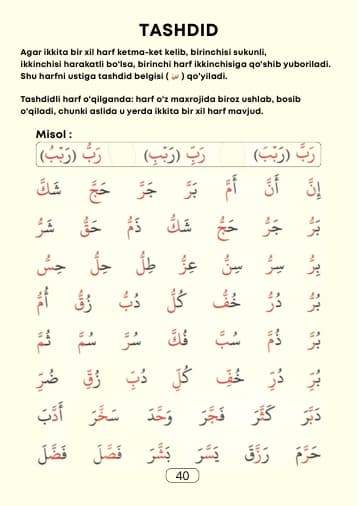 TASHDID
Agar ikkita bir xil harf ketma-ket kelib, birinchisi sukunli,
ikkinchisi harakatli bo'lsa, birinchi harf ikkinchisiga qo'shib yuboriladi.
Shu harfni ustiga tashdid belgisi ( ــّـ ) qo'yiladi.
Tashdidli harf o'qilganda: harf o'z maxrojida biroz ushlab, bosib
o'qiladi, chunki aslida u yerda ikkita bir xil harf mavjud.
Misol :
رَبَّ (رَبْبَ) رَبِّ (رَبْبِ) رَبُّ (رَبْبُ)
إِنَّ أَنَّ أَمَّ بَرَّ جَرَّ حَجَّ شَكَّ
بَرُّ جَرُّ حَجُّ شَكُّ ذَمُّ حَقُّ شَرُّ
بِرُّ سِرُّ سِنُّ عِزُّ طِلُّ حِلُّ حِسُّ
بُرُّ دُرُّ خُفُّ كُلُّ دُبُّ زُقُّ أُمُّ
بُرَّ ذُمَّ سُبَّ فُكَّ سُرَّ سُمَّ ثُمَّ
بُرِّ دُرِّ خُفِّ كُلِّ دُبِّ زُقِّ ضُرِّ
دَبَّرَ كَثَّرَ فَجَّرَ وَحَّدَ سَخَّرَ أَدَّبَ
حَرَّمَ رَزَّقَ يَسَّرَ بَشَّرَ فَصَّلَ فَضَّلَ
40